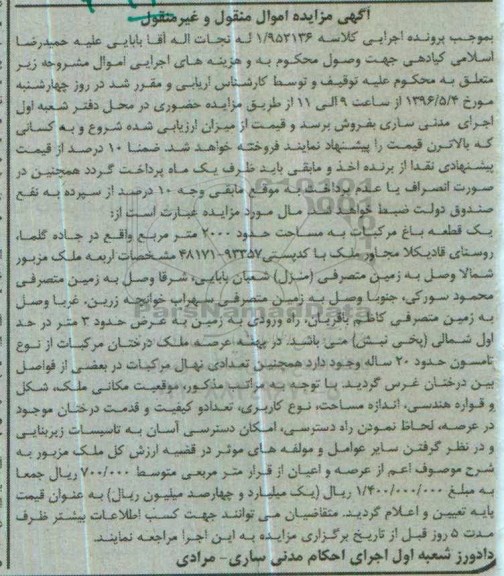 آگهی مزایده اموال منقول و غیرمنقول
بموجب پرونده اجرایی کلاسه ۱/۹۵۲۱۳۶ له نجات اله آقا بابایی علیه حمیدرضا
اسلامی کیادهی جهت وصول محکوم به و هزینه های اجرایی اموال مشروحه زیر
متعلق به محکوم علیه توقیف و توسط کارشناس ارزیابی و مقرر شد در روز چهارشنبه
مورخ ۱۳۹۶/۵/۴ از ساعت ۹ الی ۱۱ از طریق مزایده حضوری در محل دفتر شعبه اول
اجرای مدنی ساری بفروش برسد و قیمت از میزان ارزیابی شده شروع و به کسانی
که بالاترن قیمت را پیشنهاد نمایند فروخته خواهد شد. ضمنا ۱۰ درصد از قیمت
پیشنهادی نقدا از برنده اخذ و مابقی باید ظرف یک ماه پرداخت گردد همچنین در
صورت انصراف یا عدم پرداخت به موقع مابقی وجه ۱۰ درصد از سپرده به نفع
صندوق دولت ضبط خواهد شد. مال مورد مزایده عبارت است از:
یک قطعه باغ مرکبات به مساحت حدود ۲۰۰۰ متر مربع واقع در جاده گلما،
روستای قادیکلا مجاور ملک با کدپستی ۹۳۳۵۷-۴۸۱۷۱ مشخصات اربعه ملک مزبور
شمالا وصل به زمین متصرفی (منزل) شعبان بابایی، شرقا وصل به زمین متصرفی
محمود سورکی، جنوبا وصل به زمین متصرفی سهراب خوانچه زرین، غربا وصل
به زمین متصرفی کاظم باقریان، راه ورودی به زمین به عرض حدود ۳ متر در حد
اول شمالی (پخی نبش) می باشد. در پهنه عرصه ملک درختان مرکبات از نوع
تامسون حدود ۲۰ ساله وجود دارد همچنین تعدادی نهال مرکبات در بعضی از فواصل
بین درختان غرس گردید. با توجه به مراتب مذکور، موقعیت مکانی ملک، شکل
و قواره هندسی، اندازه مساحت، نوع کاربری، تعدادو کیفیت و قدمت درختان موجود
در عرصه، لحاظ نمودن راه دسترسی، امکان دسترسی آسان به تاسیسات زیربنایی
و در نظر گرفتن سایر عوامل و مولفه های موثر در قضیه ارزش کل ملک مزبور به
شرح موصوف اعم از عرصه و اعیان از قرار متر مربعی متوسط ۷۰۰/۰۰۰ ریال جمعا
به مبلغ ۱/۴۰۰/۰۰۰/۰۰۰ ریال (یک میلیارد و چهارصد میلیون ریال) به عنوان قیمت
پایه تعیین و اعلام گردید. متقاضیان می توانند جهت کسب اطلاعات بیشتر ظرف
مدت ۵ روز قبل از تاریخ برگزاری مزایده به این اجرا مراجعه نمایند.
دادورز شعبه اول اجرای احکام مدنی ساری- مرادی
ParsNamadData